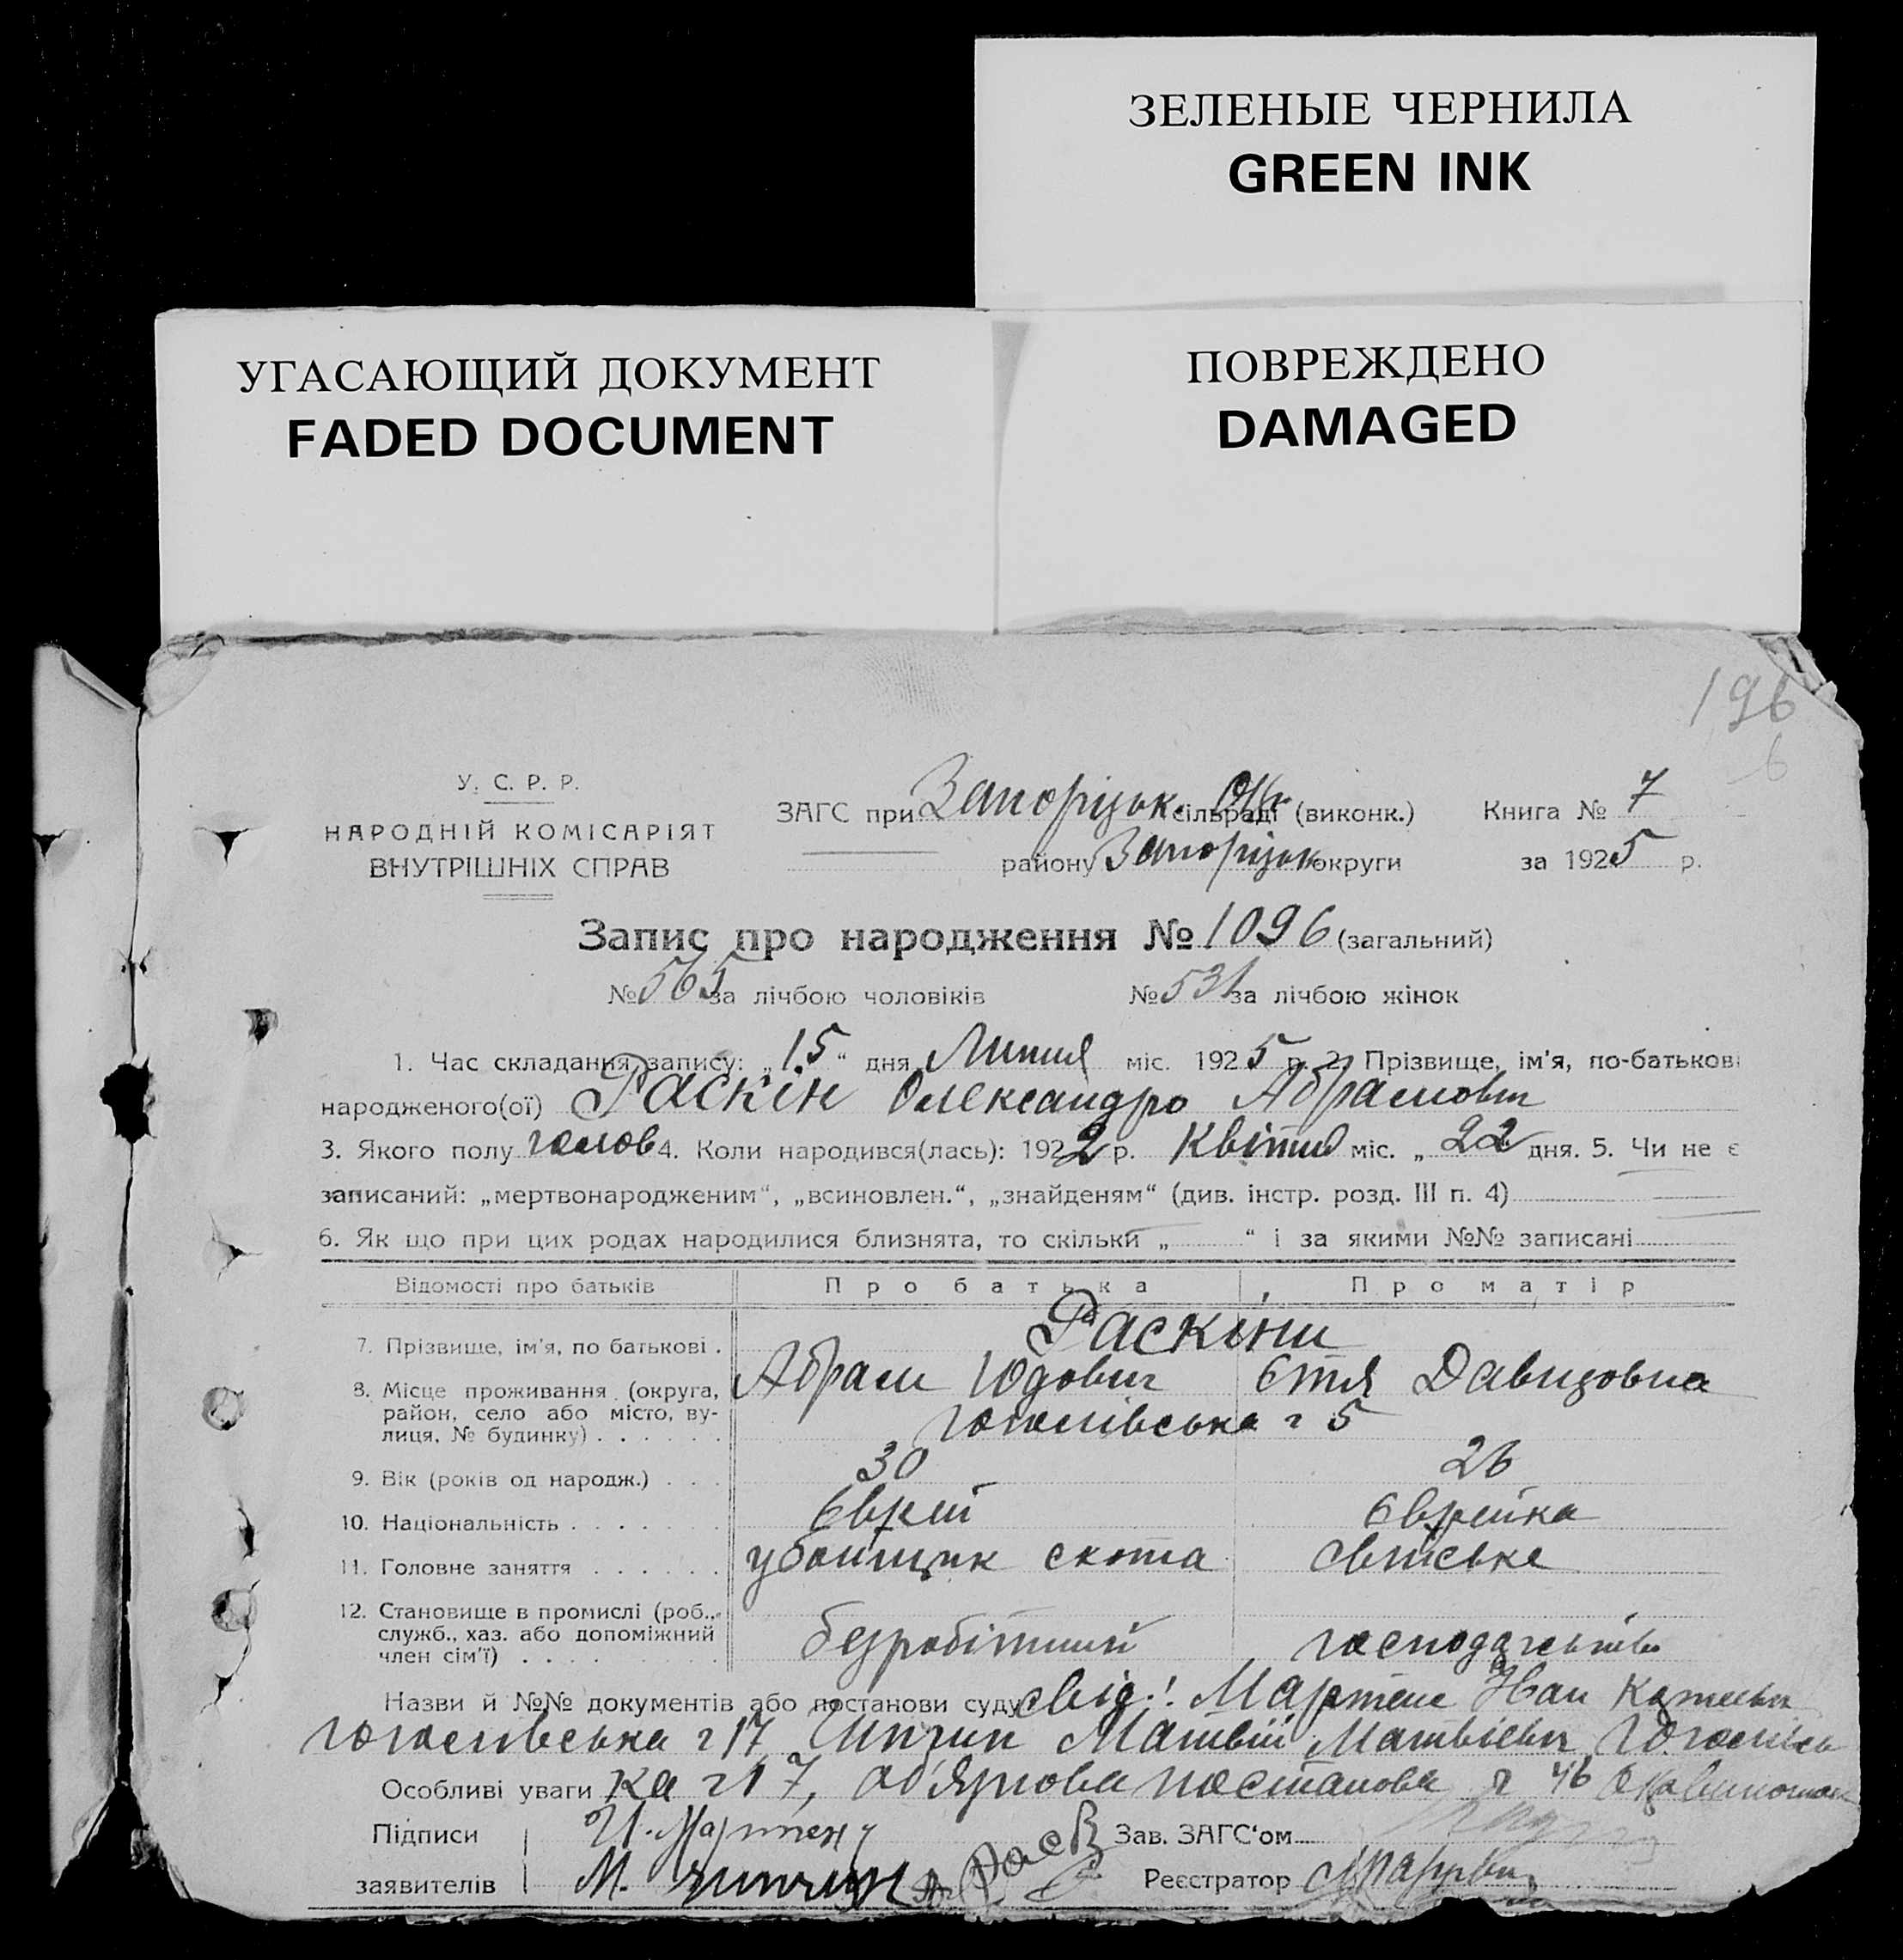 ЗЕЛЕНЫЕ ЧЕРНИЛА
GREEN INK
УГАСАЮЩИЙ ДОКУМЕНТ
FADED DOCUMENT
ПОВРЕЖДЕНО
DAMAGED
196
6
У. С. Р. Р.
НАРОДНІЙ КОМІСАРІЯТ
ВНУТРІШНІХ СПРАВ
ЗАГС при Запоріцьк. сільраді (виконк.) Книга № 7
району Запоріцьк округи за 1925 р.
Запис про народження № 1096 (загальний)
№ 565 за лічбою чоловіків № 531 за лічбою жінок
1. Час складання запису: „15“ дня Липня міс. 1925 р. 2. Прізвище, ім'я, по-батькові
народженого(ої) Раскін Олександро Абрамович
3. Якого полу чолов 4. Коли народився(лась): 1922 р. Квітня міс. „22 дня. 5. Чи не є
записаний: „мертвонародженим“, „всиновлен.“, „знайденям“ (див. інстр. розд. III п. 4)
6. Як що при цих родах народилися близнята, то скільки „ “ і за якими №№ записані
Відомості про батьків Про батька Про матір
7. Прізвище, ім'я, по батькові . Раскіни
Абрам Юдович Єтля Давидовна
8. Місце проживання (округа,
район, село або місто, ву-
лиця, № будинку) . . . . . . Гоголівська ч 5
9. Вік (років од народж.) . . . 30 26
10. Національність . . . . . . . Єврей Єврейка
11. Головне заняття . . . . . . убойщик скота свійське
12. Становище в промислі (роб.,
служб., хаз. або допоміжний
член сім'ї) . . . . безробітний господарьство
Назви й №№ документів або постанови суду свід.: Мартенс Іван
гоголівська ч 17, Матвій Матвієвич Гоголівсь
Особливі уваги ка ч 17, обов'язкова постанова ч 46
Підписи И. Мартенс Зав. ЗАГС'ом
заявителів М. Реєстратор